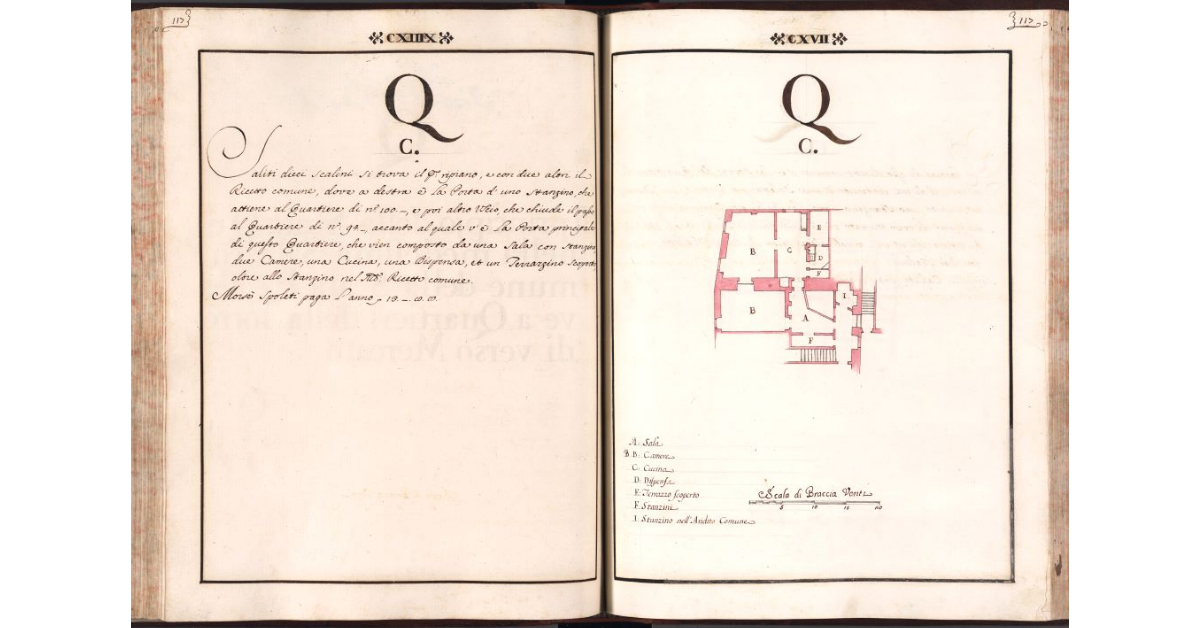 117
CXIIIX
Q
C.
Saliti dieci scalini si trova il pº ripiano, e con due altri il
Ricetto comune, dove a destra è la Porta d' uno Stanzino, che
attiene al Quartiere di nº 100 _, e poi altro Uscio, che chiude il passo
al Quartiere di nº 98 _, accanto al quale v' è la Porta principale
di questo Quartiere, che vien composto da una Sala con stanzino
due Camere, una Cucina, una Dispensa, et un Terrazzino scoperto
oltre allo Stanzino nel Ricetto comune.
Spoleti paga l'anno
117
CXVII
Q
C.
E
B
C
D
F
B
I
A
F
A. Sala
B B. Camere
C. Cucina
D. Dispensa
E. Terrazzo scoperto
F. Stanzini
I. Stanzino nell'Andito Comune
Scala di Braccia Venti
5 10 15 20